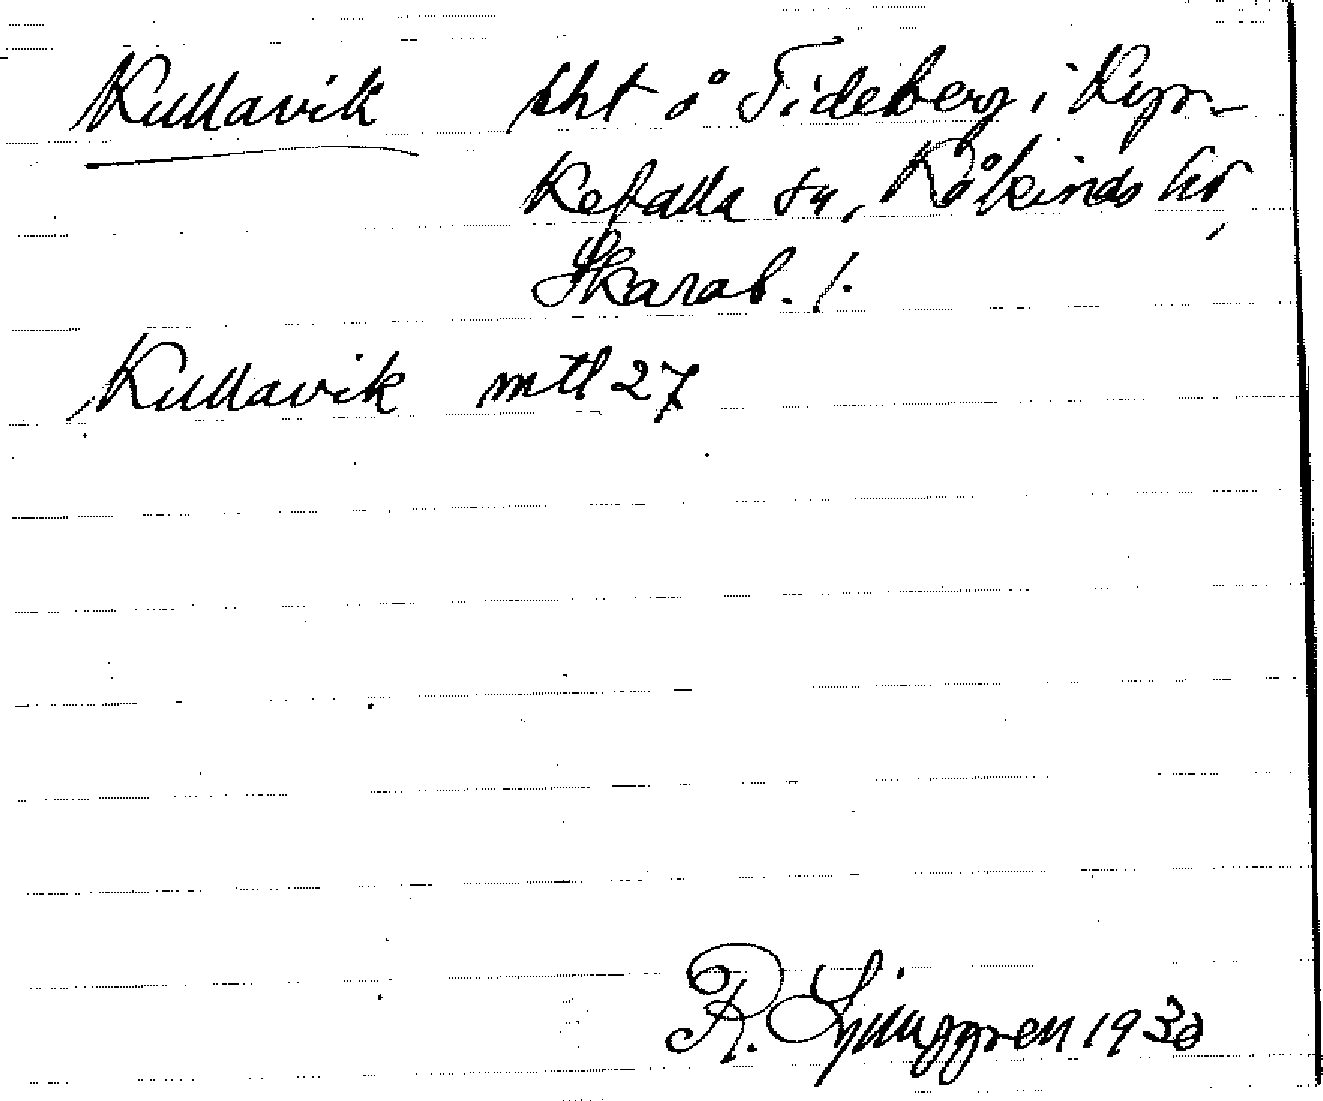 Kullavik tht å Tideberg i Kyr-
kefalla sn, Kåkinds hd,
Skarab. l.
Kullavik mtl 27
R. Ljunggren 1930